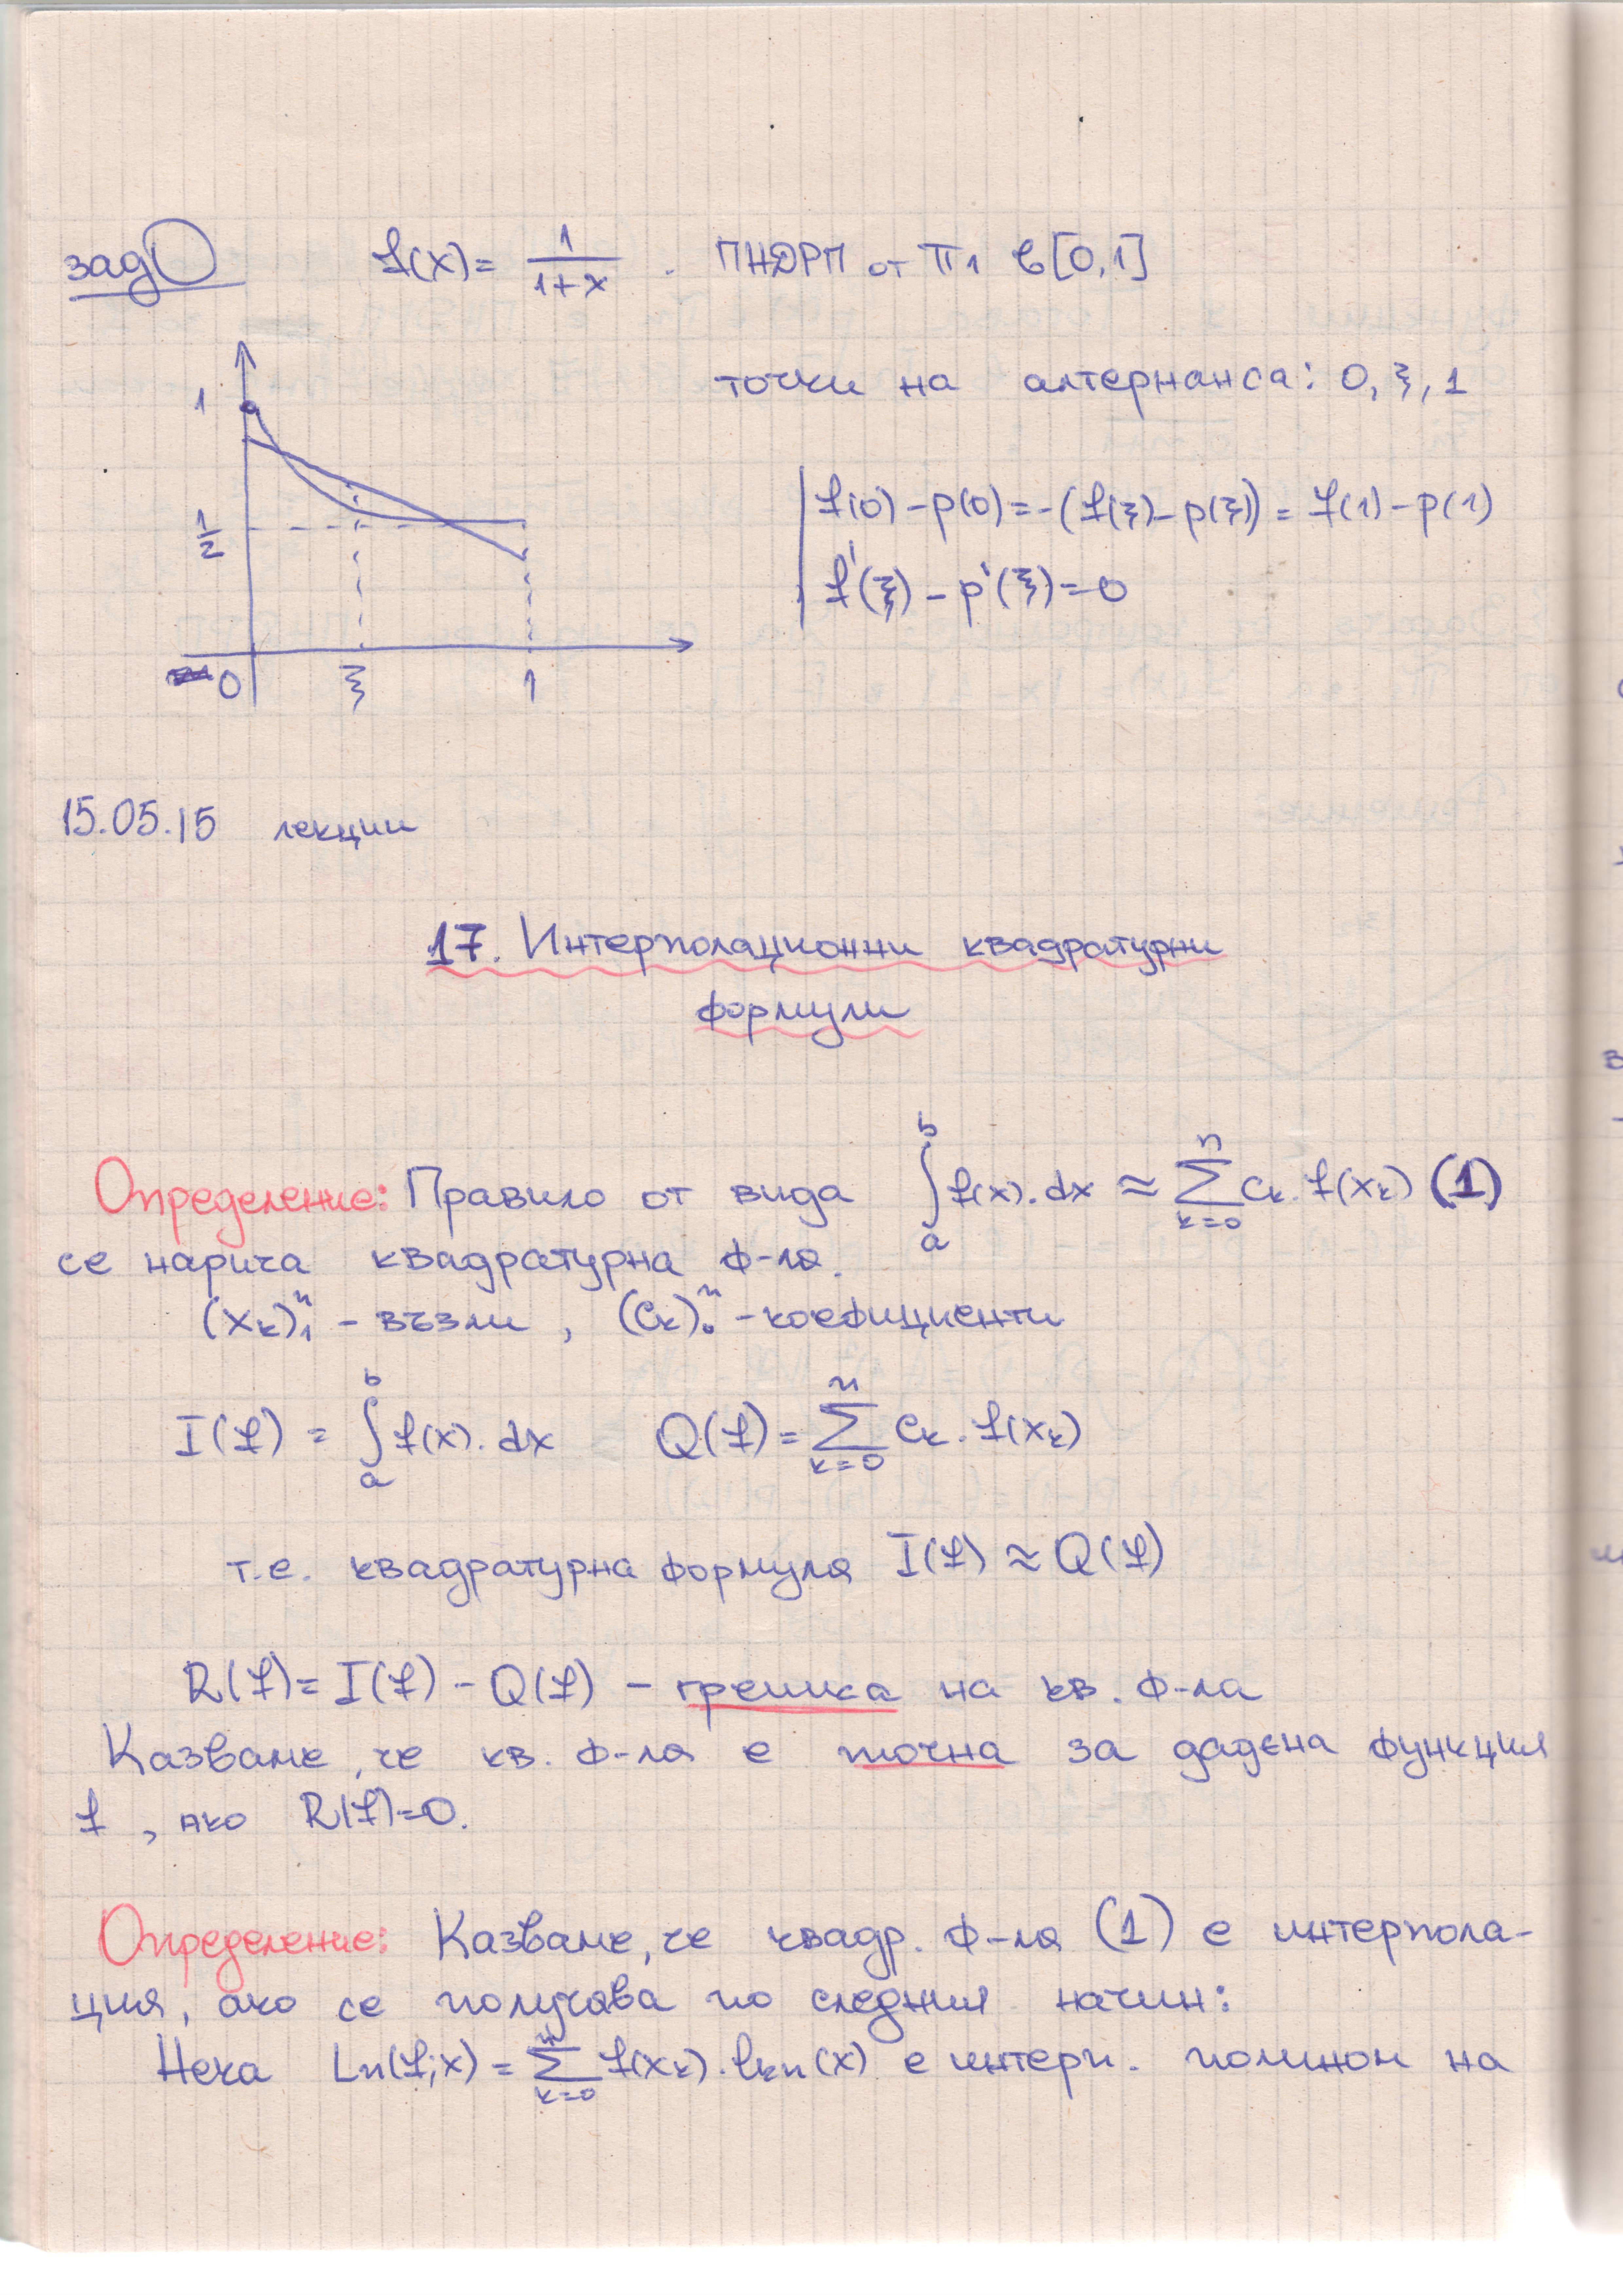 зад f(x) = 1/(1+x) . ПНДРП от π₁ в [0,1]
точки на алтернанса: 0, ξ, 1
1
f(0) - p(0) = -(f(ξ) - p(ξ)) = f(1) - p(1)
1/2
f'(ξ) - p'(ξ) = 0
0 ξ 1
15.05.15 лекции
17. Интерполационни квадратурни
формули
Определение: Правило от вида ∫ₐᵇ f(x).dx ≈ ∑ₖ₌₀ⁿ cₖ.f(xₖ) (1)
се нарича квадратурна ф-ла.
(xₖ)₁ⁿ - възли, (cₖ)₀ⁿ - коефициенти
I(f) = ∫ₐᵇ f(x).dx Q(f) = ∑ₖ₌₀ⁿ cₖ.f(xₖ)
т.е. квадратурна формула I(f) ≈ Q(f)
R(f) = I(f) - Q(f) - грешка на кв. ф-ла
Казваме, че кв. ф-ла е точна за дадена функция
f, ако R(f)=0.
Определение: Казваме, че квадр. ф-ла (1) е интерпола-
ция, ако се получава по следния начин:
Нека Ln(f;x) = ∑ₖ₌₀ⁿ f(xₖ).lₖₙ(x) е интерп. полином на